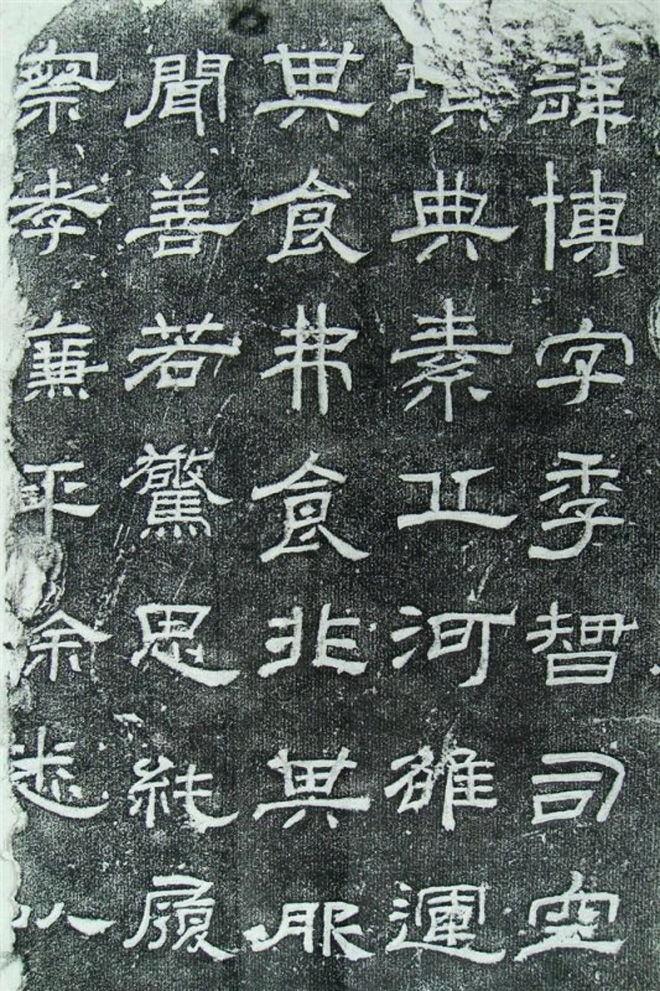 諱博字季智司空
典素丘河雒運
其食弗食非其服
聞善若驚思純履
察孝廉余以